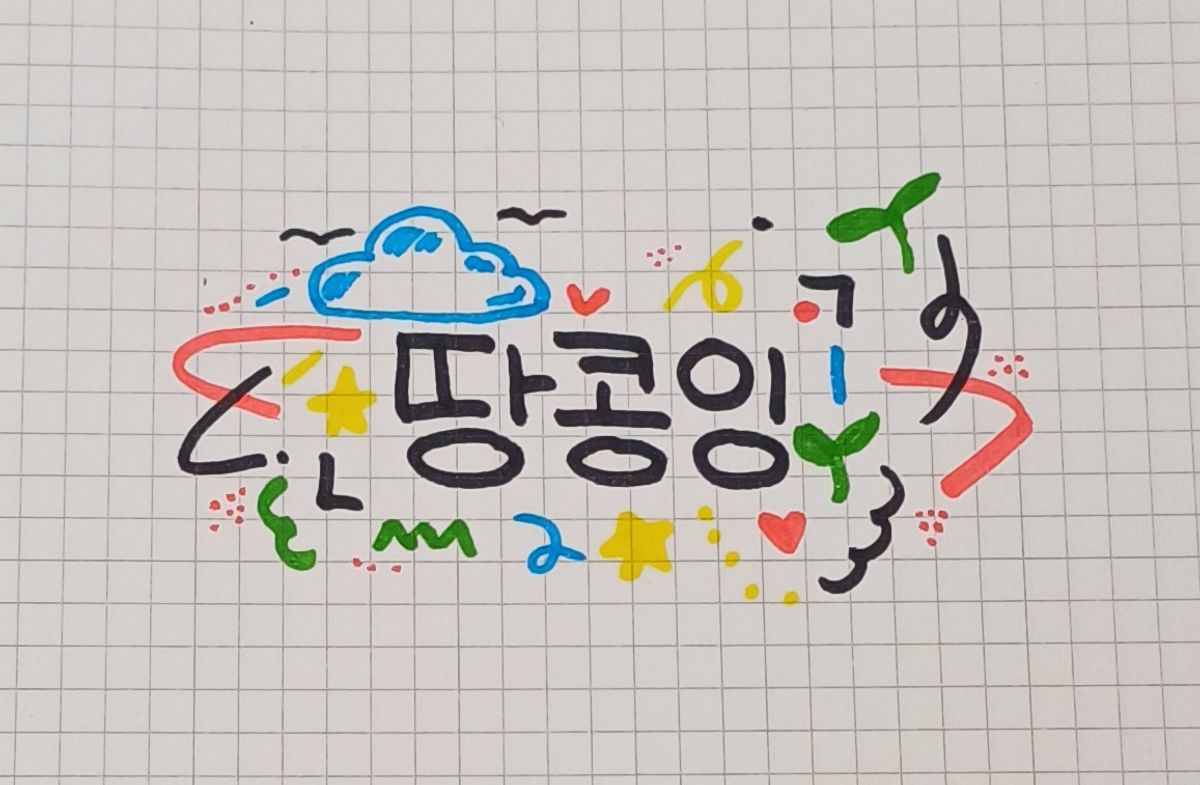 땅콩잉